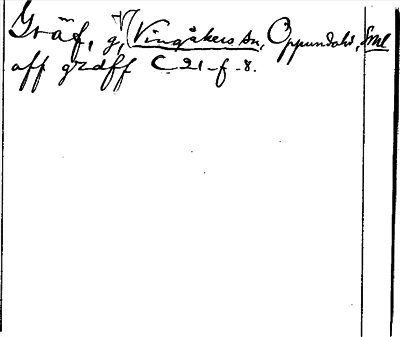 Gräf, g, (Vingåkers sn, Oppunda hd, Sml
aff gräff C 21 f. 8.